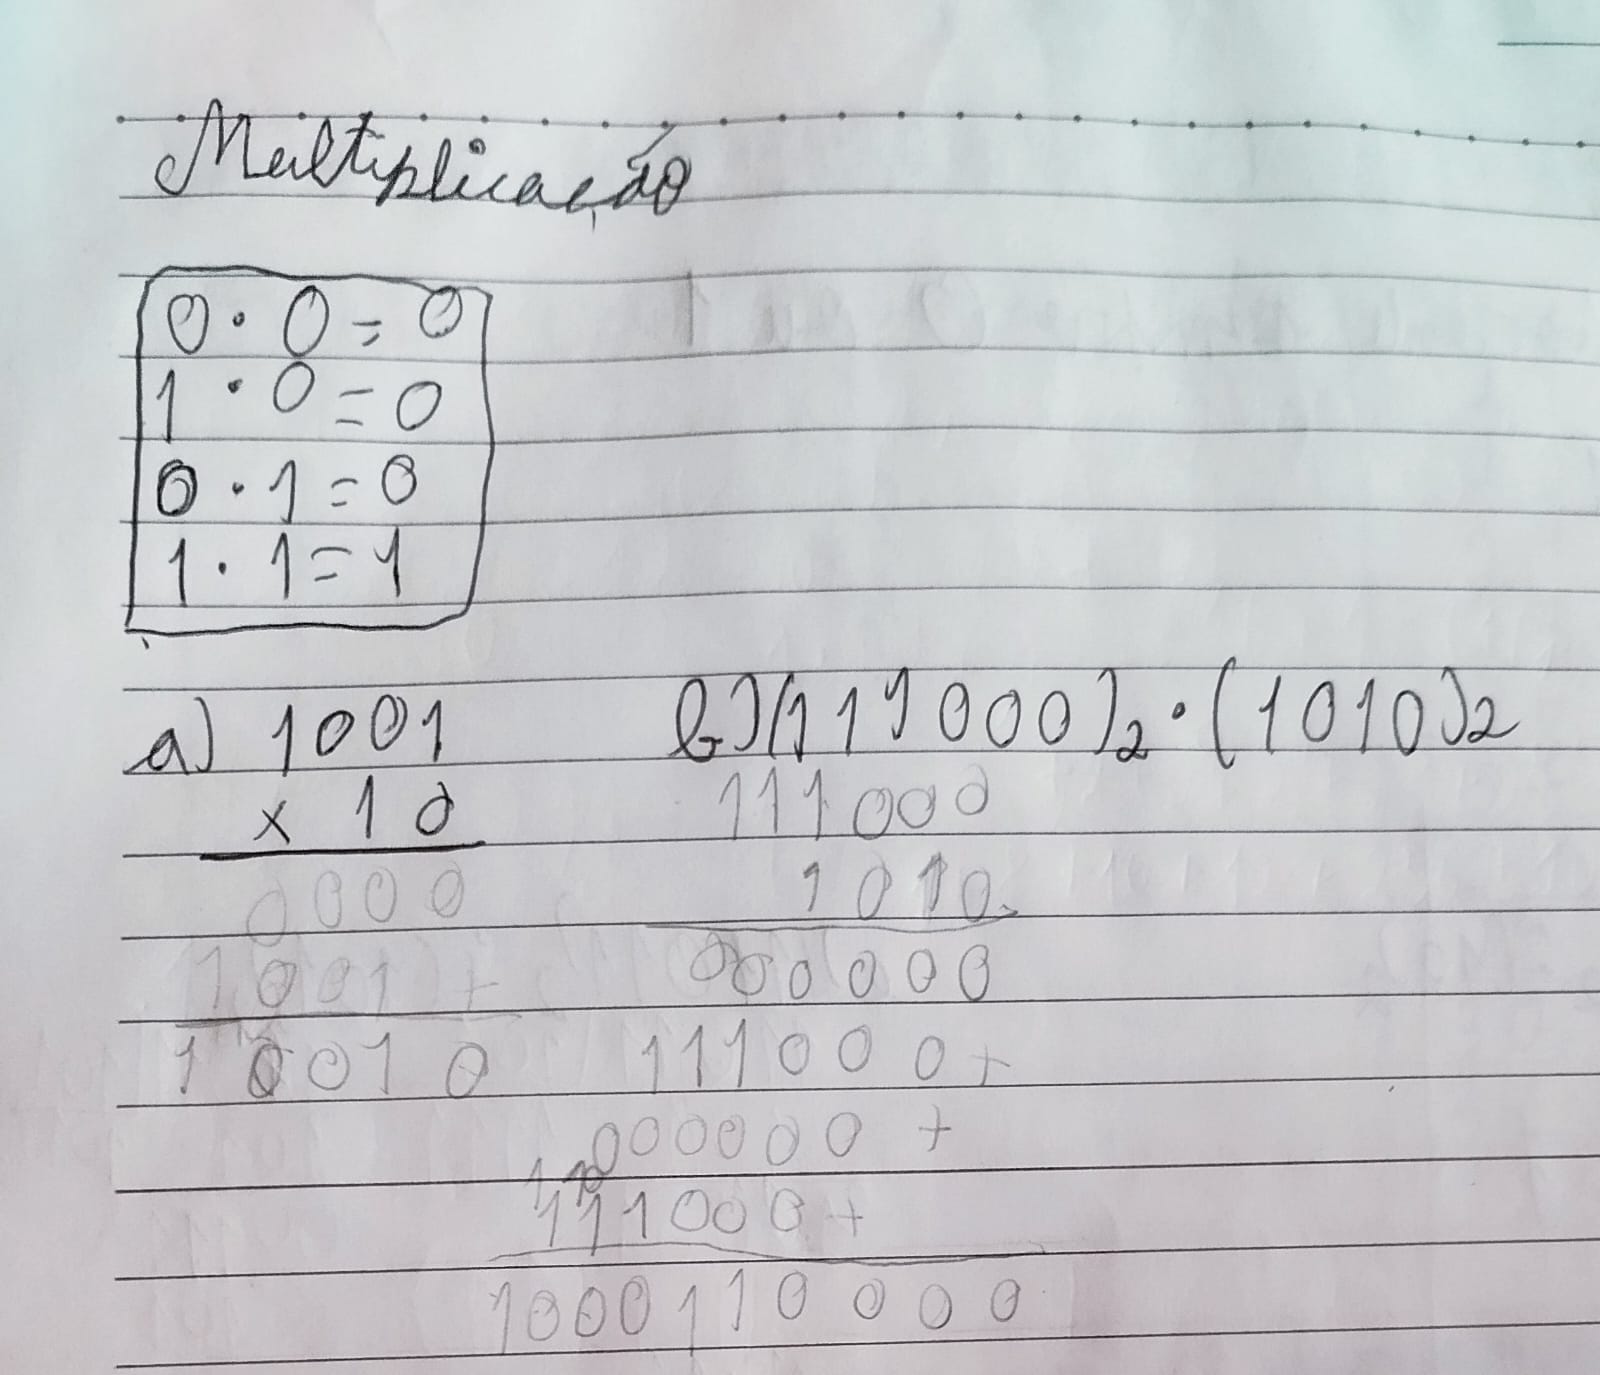 Multiplicação
0 · 0 = 0
1 · 0 = 0
0 · 1 = 0
1 · 1 = 1
a) 1001
x 10
0000
1001 +
10010
b) (111000)2 · (1010)2
111000
1010
000000
111000+
000000 +
111000+
1000110000